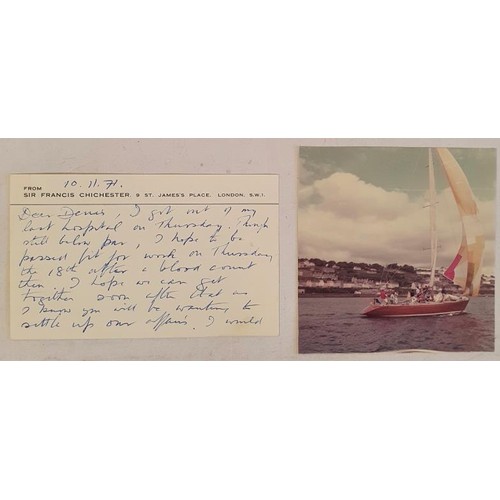 FROM
SIR FRANCIS CHICHESTER, 9 ST. JAMES'S PLACE, LONDON, S.W.1.
10.11.71.
Dear Denis, I got out of my
last hospital on Thursday. Though
still below par, I hope to be
passed fit for work on Thursday
the 18th after a blood count
then. I hope we can get
together soon after that as
I know you will be wanting to
settle up our affairs. I would